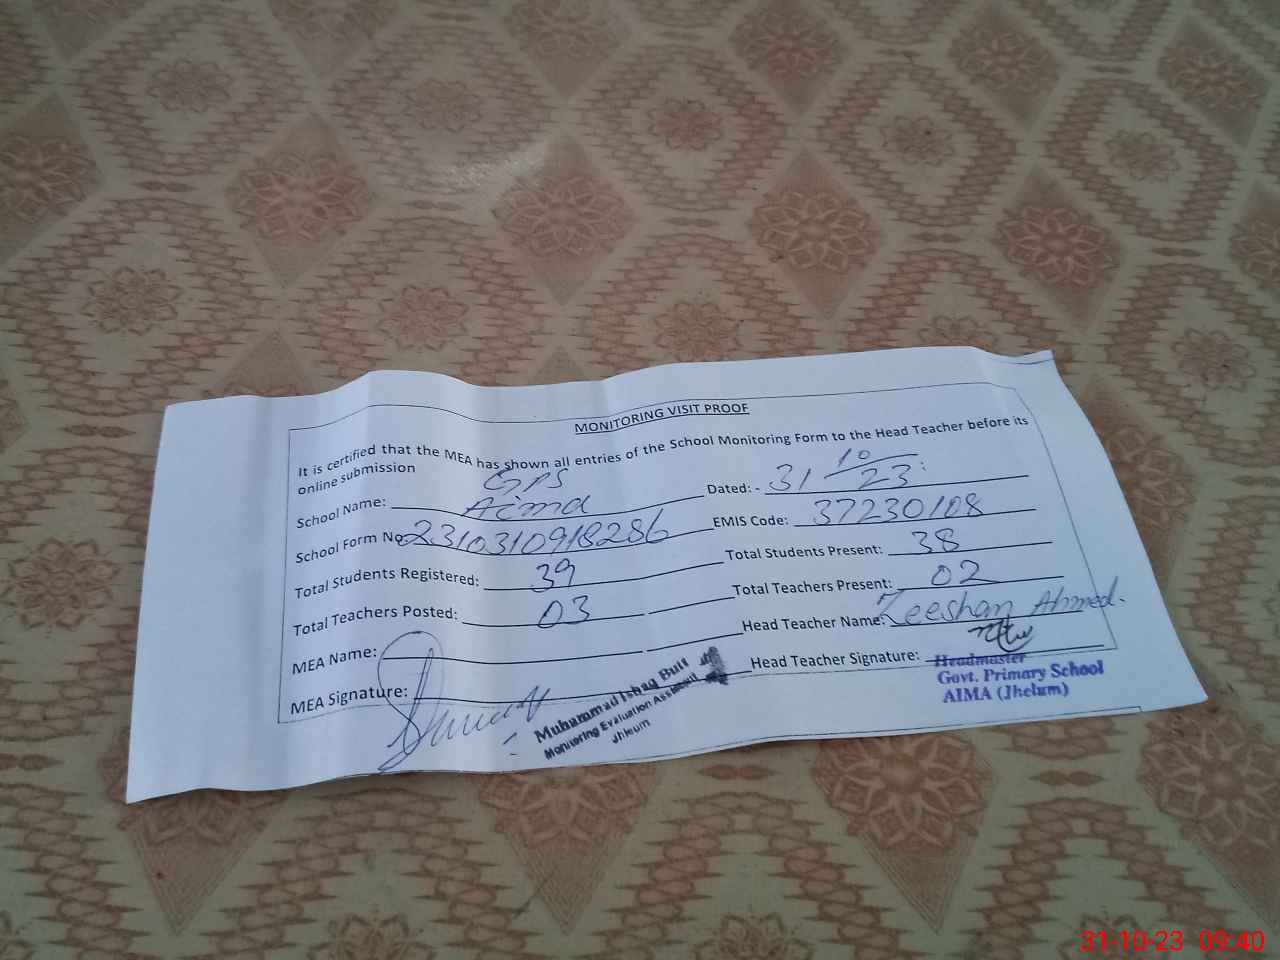 MONITORING VISIT PROOF
It is certified that the MEA has shown all entries of the School Monitoring Form to the Head Teacher before its
online submission
School Name: GPS Aima
Dated: - 31-10-23
School Form No 2310310918286
EMIS Code: 37230108
Total Students Registered: 39
Total Students Present: 38
Total Teachers Posted: 03
Total Teachers Present: 02
MEA Name:
Head Teacher Name: Zeeshan Ahmed.
MEA Signature:
Head Teacher Signature:
Muhammad Ishaq Butt
Monitoring Evaluation Assistant
Jhleum
Headmaster
Govt. Primary School
AIMA (Jhelum)
31-10-23 09:40